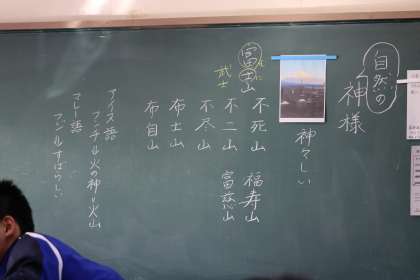 自然の
神様
神々しい
富士山
武士
不死山 福寿山
不二山 富慈山
不尽山
布士山
布自山
アイヌ語
フンチル火の神り火山
マレー語
フンヌルすばらしい